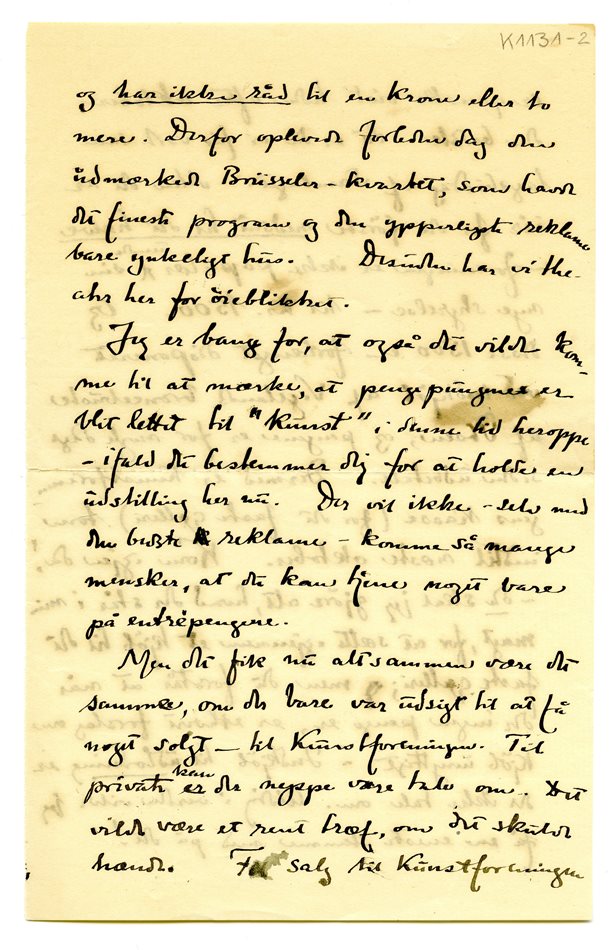 K1131-2
og har ikke råd til en krone eller to
mere. Derfor oplevede forleden dag den
udmærkede Brüsseler-kvartet, som havde
det fineste program og den ypperligste reklame
bare ynkeligt hus. Desuden har vi the-
ater her for öieblikket.
Jeg er bange for, at også du vilde kom-
me til at mærke, at pengepungene er
blit lettet til "Kunst" i denne tid heroppe
- ifald du bestemmer dig for at holde en
udstilling her nu. Der vil ikke - selv med
den bedste reklame - komme så mange
mensker, at du kan tjene noget bare
på entrépengene.
Men det fik nu altsammen være det
samme, om der bare var udsigt til at få
noget solgt - til Kunstforeningen. Til
private kan der neppe være tale om. Det
vilde være et rent træf, om det skulde
hænde. For salg til Kunstforeningen